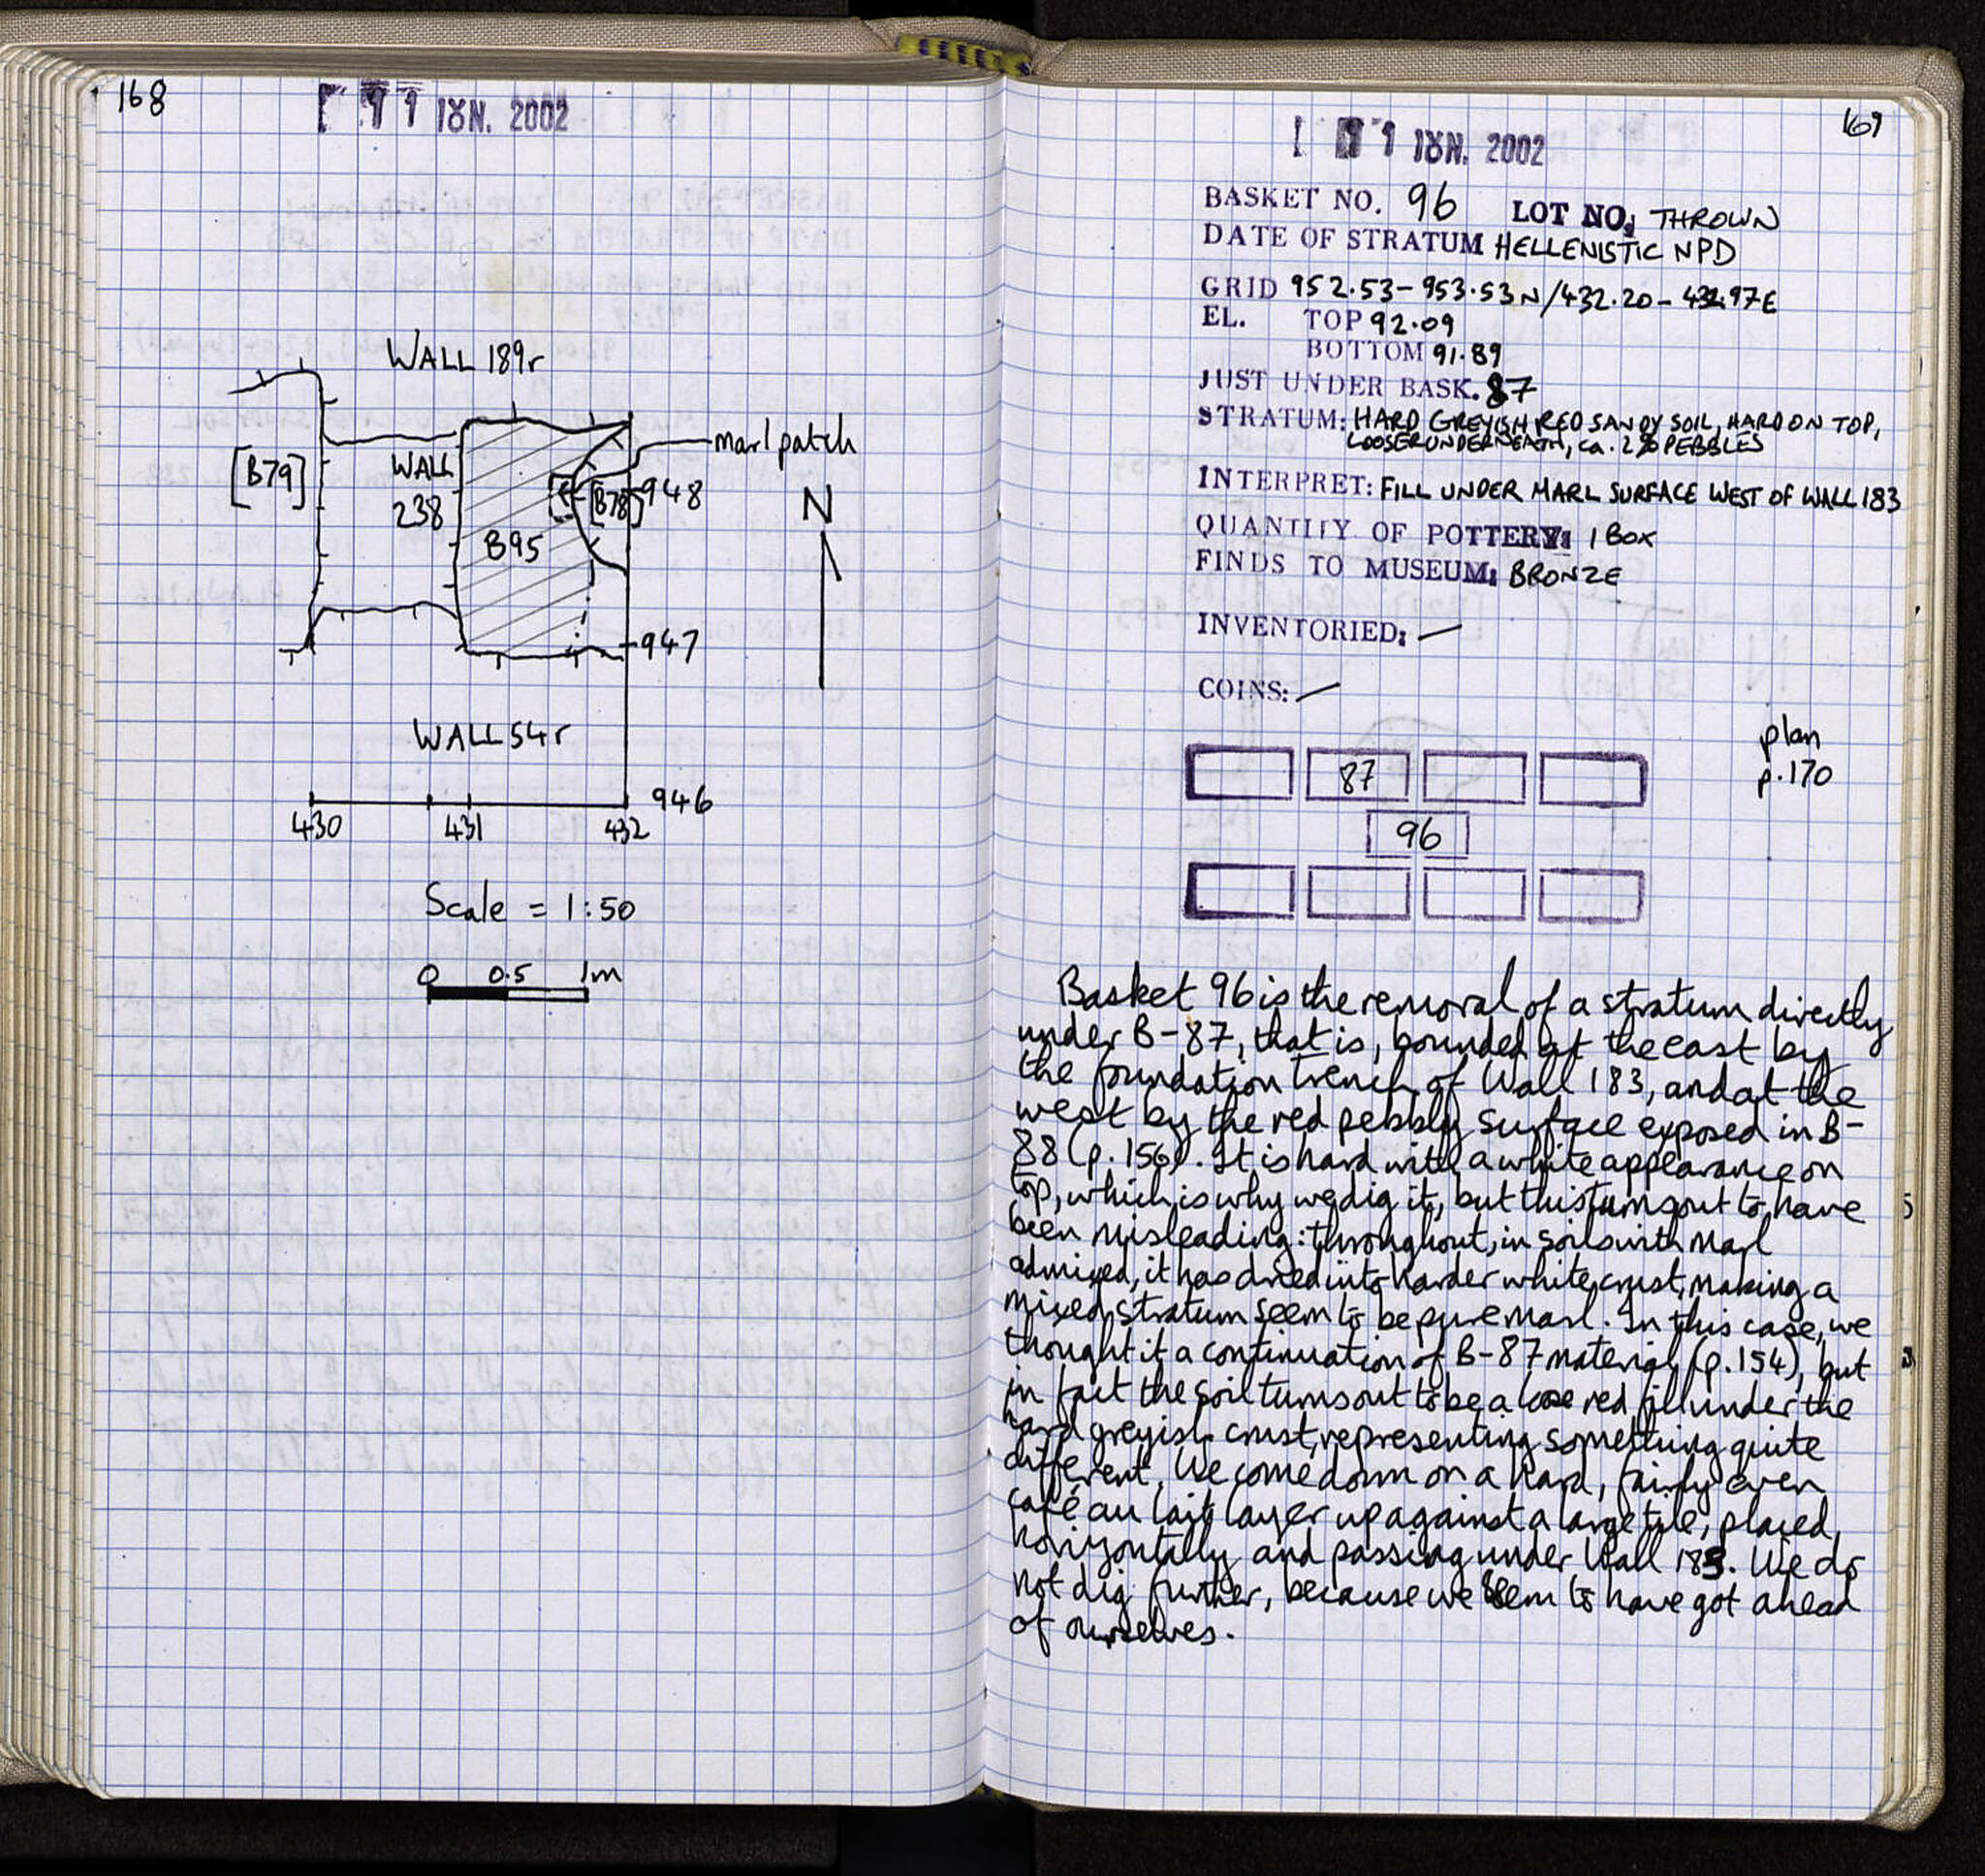 168
11 ΙΟΥΝ. 2002
WALL 189r
marl patch
[B79]
WALL
238
[B78]
948
N
B95
947
WALL 54r
946
430 431 432
Scale = 1:50
0 0.5 1m
169
11 ΙΟΥΝ. 2002
BASKET NO. 96 LOT NO: THROWN
DATE OF STRATUM HELLENISTIC NPD
GRID 952.53-953.53N/432.20-432.97E
EL. TOP 92.09
BOTTOM 91.89
JUST UNDER BASK. 87
STRATUM: HARD GREYISH RED SANDY SOIL, HARD ON TOP,
LOOSER UNDERNEATH, ca. 2% PEBBLES
INTERPRET: FILL UNDER MARL SURFACE WEST OF WALL 183
QUANTITY OF POTTERY: 1 BOX
FINDS TO MUSEUM: BRONZE
INVENTORIED: —
COINS: —
plan
p.170
87
96
Basket 96 is the removal of a stratum directly
under B-87, that is, bounded at the east by
the foundation trench of Wall 183, and at the
west by the red pebbly surface exposed in B-
88 (p.156). It is hard with a white appearance on
top, which is why we dig it, but this turns out to have
been misleading: throughout, in soils with marl
admixed, it has dried into harder white crust, making a
mixed stratum seem to be pure marl. In this case, we
thought it a continuation of B-87 material (p.154), but
in fact the soil turns out to be a loose red fill under the
hard greyish crust, representing something quite
different. We come down on a hard, fairly even
café au lait layer up against a large tile, placed
horizontally and passing under Wall 183. We do
not dig further, because we seem to have got ahead
of ourselves.